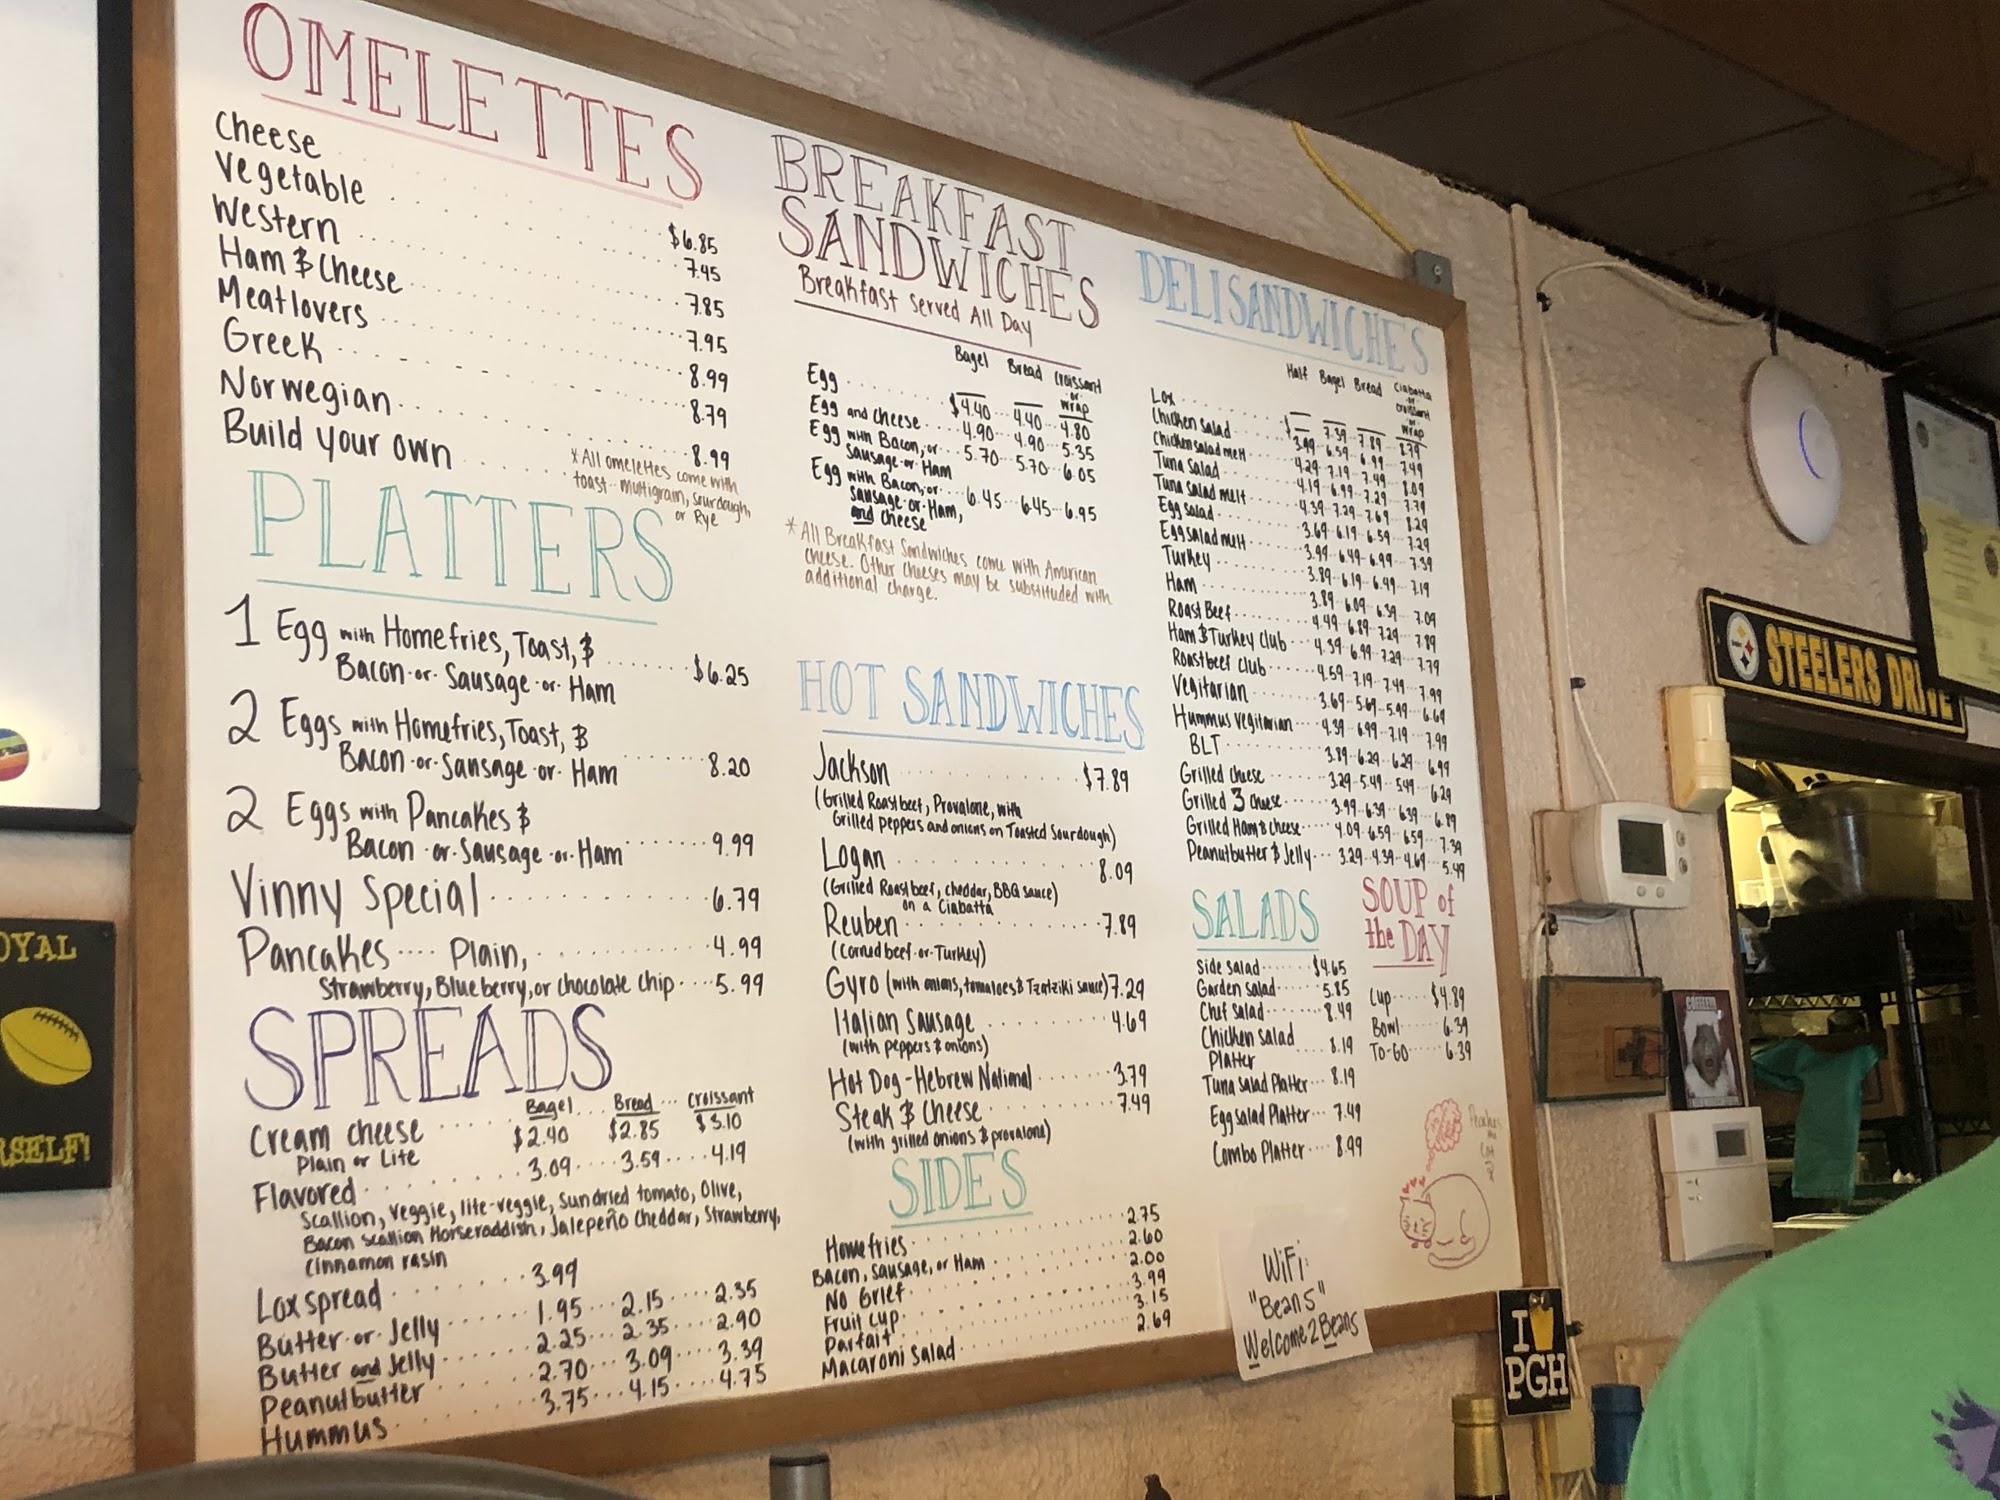 OMELETTES
Cheese $6.85
Vegetable 7.45
Western 7.85
Ham & Cheese 7.95
Meatlovers 8.99
Greek 8.79
Norwegian 8.99
Build your own
*All omelettes come with
toast - multigrain, sourdough,
or Rye
PLATTERS
1 Egg with Homefries, Toast, &
Bacon or Sausage or Ham $6.25
2 Eggs with Homefries, Toast, &
Bacon or Sansage or Ham 8.20
2 Eggs with Pancakes &
Bacon or Sausage or Ham 9.99
Vinny Special 6.79
Pancakes Plain, 4.99
Strawberry, Blueberry, or chocolate chip 5.99
SPREADS
Bagel Bread Croissant
Cream cheese $2.40 $2.85 $3.10
Plain or Lite
Flavored 3.09 3.59 4.19
Scallion, veggie, lite-veggie, Sundried tomato, Olive,
Bacon scallion Horseraddish, Jalepeño Cheddar, Strawberry,
Cinnamon rasin
Lox spread 3.99
Butter or Jelly 1.95 2.15 2.35
Butter and Jelly 2.25 2.35 2.90
Peanutbutter 2.70 3.09 3.39
Hummus 3.75 4.15 4.75
BREAKFAST
SANDWICHES
Breakfast Served All Day
Bagel Bread Croissant
or
wrap
Egg $4.40 4.40 4.80
Egg and cheese 4.90 4.90 5.35
Egg with Bacon, or 5.70 5.70 6.05
Sausage or Ham
Egg with Bacon, or 6.45 6.45 6.95
Sausage or Ham,
and cheese
*All Breakfast Sandwiches come with American
cheese. Other cheeses may be substituted with
additional charge.
HOT SANDWICHES
Jackson $7.89
(Grilled Roastbeef, Provalone, with
Grilled peppers and onions on Toasted Sourdough)
Logan 8.09
(Grilled Roastbeef, cheddar, BBQ sauce)
on a Ciabatta
Reuben 7.89
(Corned beef or Turkey)
Gyro (with onions, tomatoes & Tzatziki sauce) 7.29
Italian Sausage 4.69
(with peppers & onions)
Hot Dog - Hebrew National 3.79
Steak & Cheese 7.49
(with grilled onions & provalone)
SIDES
Homefries 2.75
Bacon, Sausage, or Ham 2.60
No Grief 2.00
Fruit cup 3.99
Parfait 3.15
Macaroni Salad 2.69
DELI SANDWICHE'S
Half Bagel Bread Ciabatta
or
croissant
or
wrap
Lox $ 7.39 7.89 8.79
Chicken salad 3.99 6.59 6.99 7.49
Chicken salad melt 4.29 7.19 7.49 8.09
Tuna Salad 4.19 6.99 7.29 7.79
Tuna Salad melt 4.39 7.29 7.69 8.29
Egg salad 3.69 6.19 6.59 7.29
Egg salad melt 3.99 6.49 6.99 7.39
Turkey 3.89 6.19 6.49 7.19
Ham 3.89 6.09 6.39 7.09
Roast Beef 4.49 6.89 7.29 7.89
Ham & Turkey Club 4.39 6.99 7.29 7.79
Roastbeef club 4.59 7.19 7.49 7.99
Vegitarian 3.69 5.69 5.99 6.69
Hummus vegitarian 4.39 6.99 7.19 7.99
BLT 3.89 6.29 6.29 6.99
Grilled cheese 3.29 5.49 5.49 6.29
Grilled 3 cheese 3.99 6.39 6.39 6.89
Grilled Ham & cheese 4.09 6.59 6.59 7.39
Peanutbutter & Jelly 3.29 4.39 4.69 5.49
SALADS
Side salad $4.65
Garden salad 5.85
Chef salad 8.49
Chicken Salad
Platter 8.19
Tuna salad Platter 8.19
Egg salad Platter 7.49
Combo Platter 8.99
SOUP of
the DAY
Cup $4.89
Bowl 6.39
To-Go 6.39
WiFi:
"Beans"
Welcome2Beans
STEELERS DRIVE
I
PGH
OYAL
RSELF!